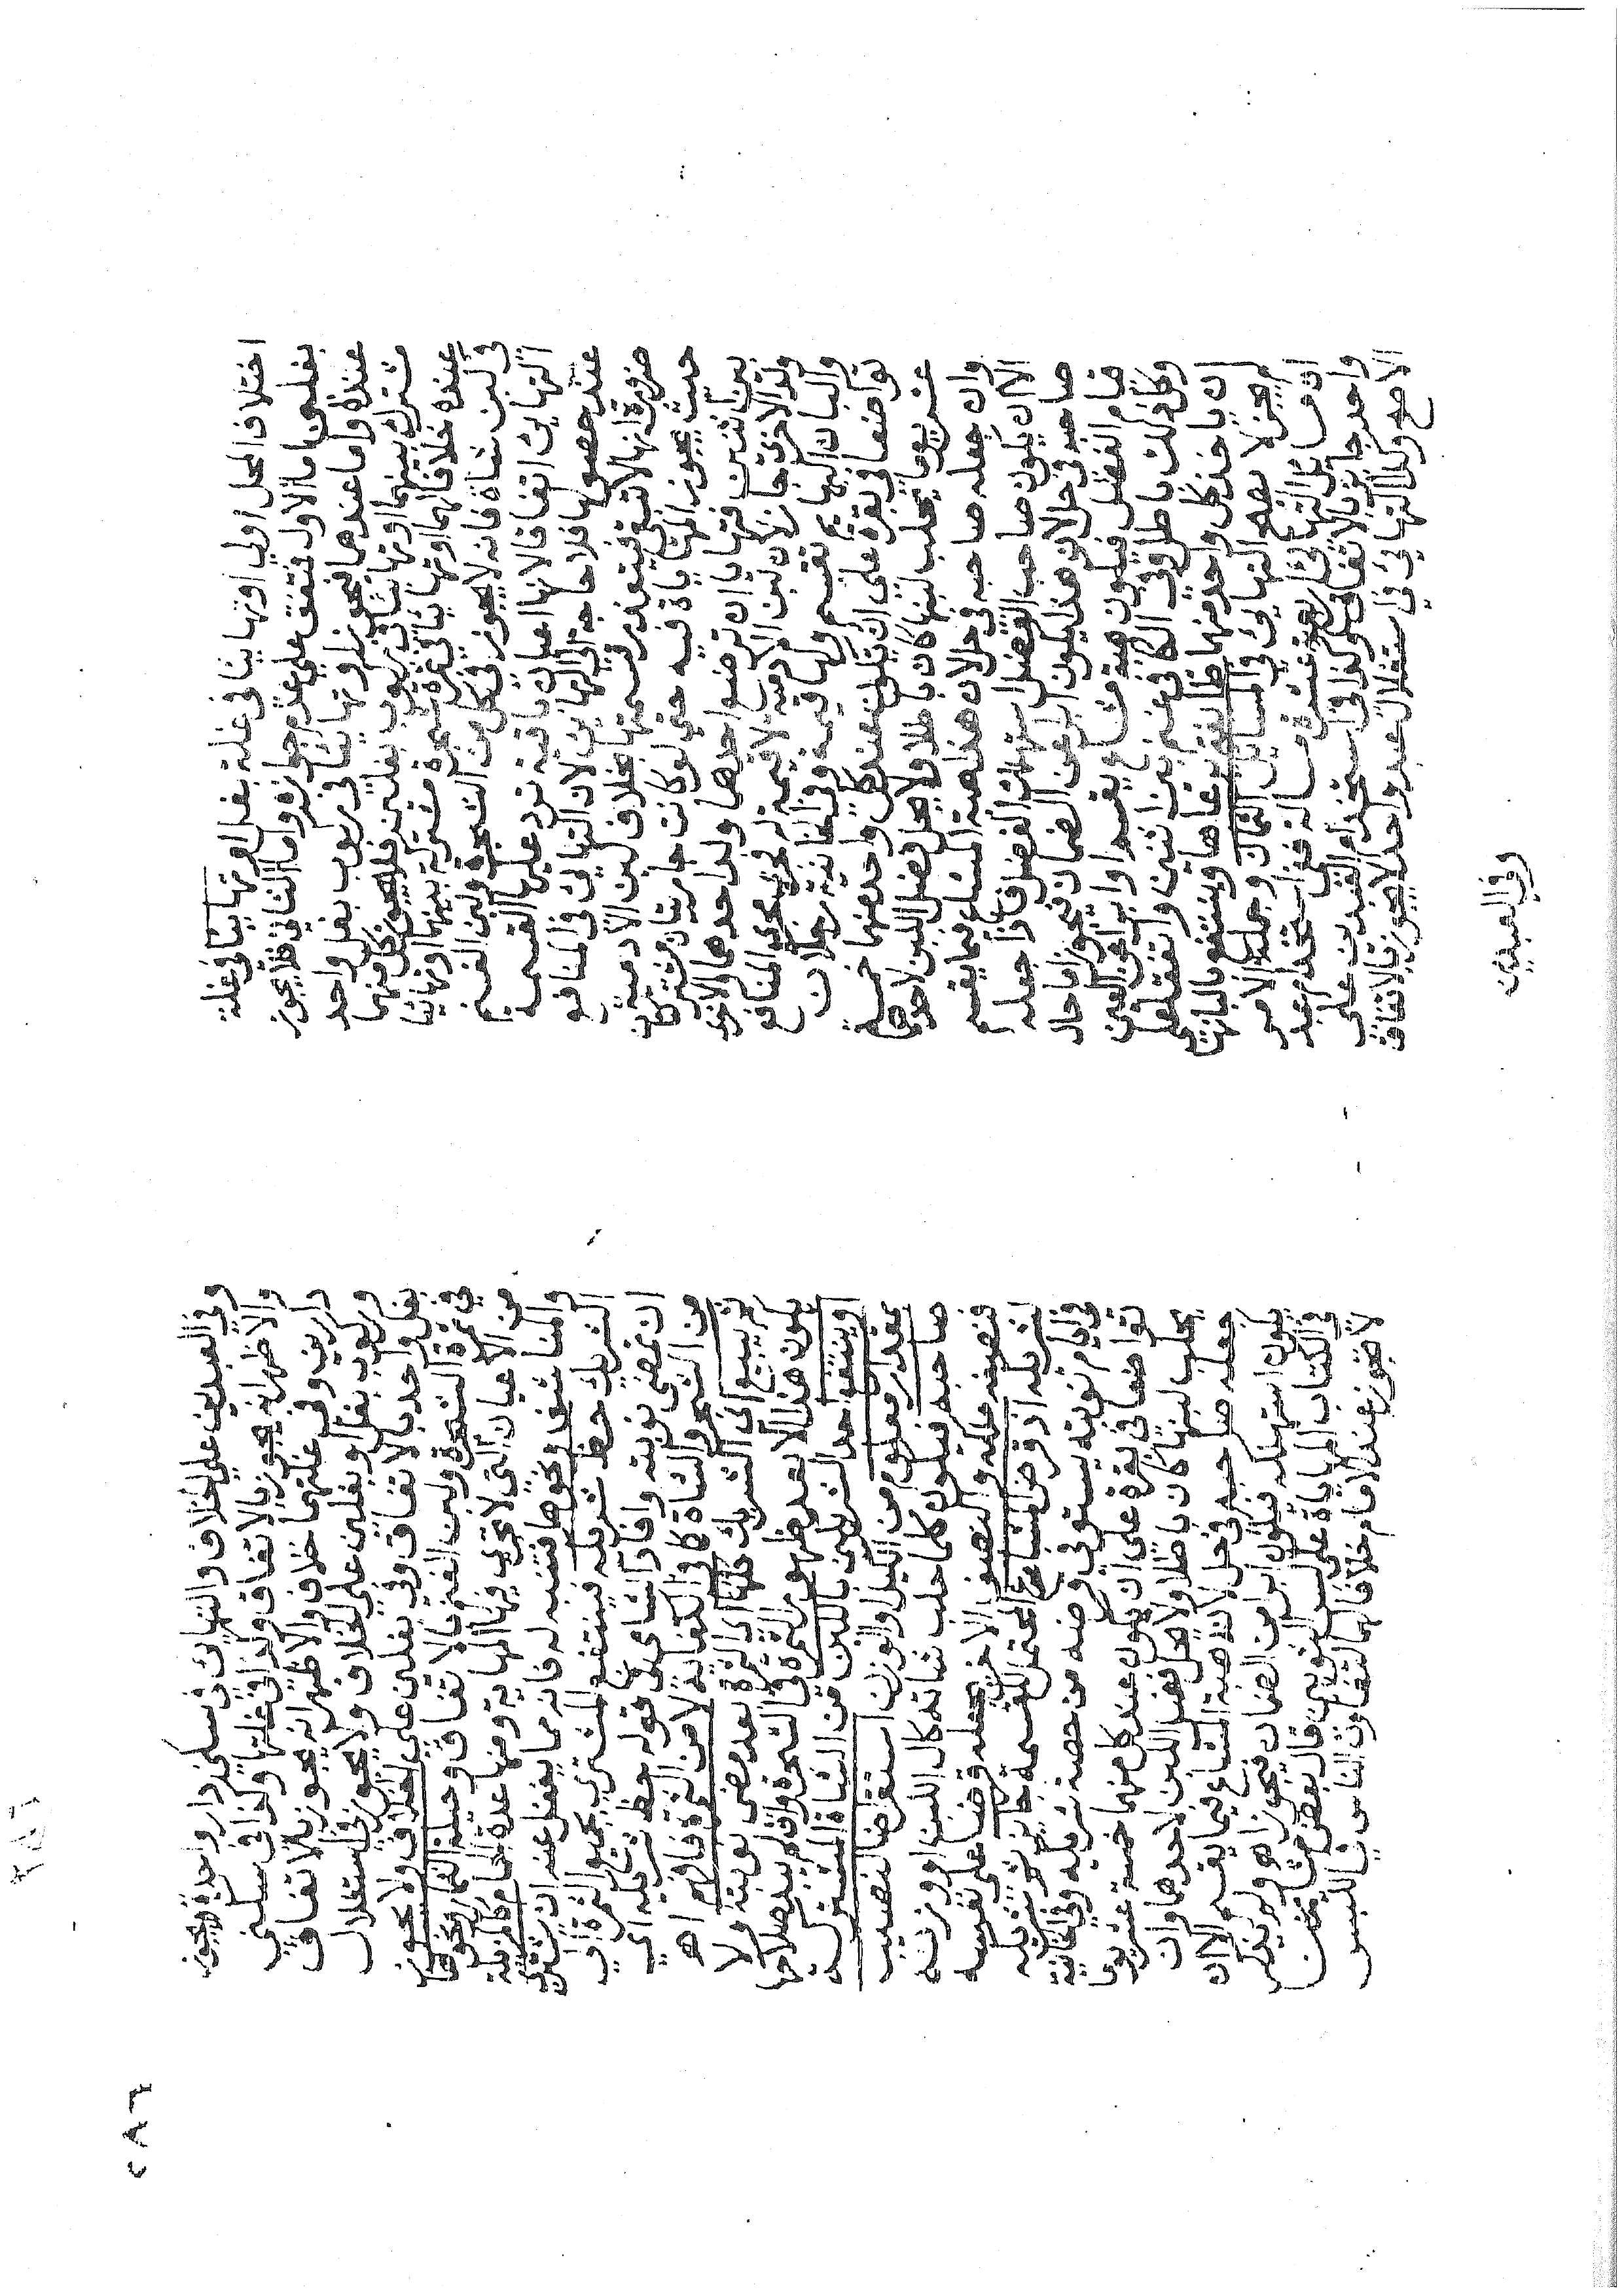 اختلاف المحل اولي او تهايئا في غلة بغل او تهايئا في غلة
بغلين اما الاول فمتفق علي عدم جوازه واما الثاني فلا يجوز
عنده واما عندهما فيجوز او تهايئا في ركوب بغل واحد
مشترك بينهما او تهايئا في ركوب بغلين فلا يجوز كل منهما
عنده خلافا لهما او تهايئا في ثمرة شجرة مشتركة بينهما او تهايئا
في لبن شاة فانه لا يجوز في كل من الشجرة ولبن الغنم
التهايئ اتفاقا لانها اعيان باقية ترد عليها القسمة
عند حصولها فلا حاجة الي التهايئ لان التهايئ في المنافع
ضرورة انها لا تبقي فيتعذر قسمتها بخلاف لبن الادميتين
حيث يجوز المهاياة فيه حتي لو كانت جاريتان مشتركتان
بين اثنين فتهايا ان ترضع احدهما ولد احدهما والاخري
ولد الاخر جاز لان لبن الادمية لا قيمة له فجري مجري المنافع
والبان البهايم تقسم ولها قيمة وفي الخانية رجلان
تواضعا في بقرة علي ان تكون عند كل واحد منهما خمسة
عشر يوما يحلب لبنها كان باطلا ولا يحل فضل اللبن لاحدهما
وان جعله صاحبه في حل لان هذا هبة المشاع فيما يقسم
الا ان يكون صاحب الفضل استهلك الفضل فاذا جعله
صاحبه في حل لان هذا يكون ابراء عن الضمان فيجوز اما حال
قيام الفضل فيكون هبة مشاع يقسم او ابراء عن العين
وكل ذلك باطل وفي الكافي غنم بين اثنين واتفقا علي
ان ياخذ كل واحد منهما طائفة يرعاها وينتفع بالبانها
لم يجز لا يصح التهايئ في المسايل الثمان وجملة الامر
ان مسايل التهايئ اربعة عشر مسالة ففي استخدام عبد
واحد جايز بالاتفاق وكذا في استخدام العبدين علي
الاصح وكذا التهايئ في استغلال عبد واحد لا يجوز بالاتفاق
وفي العبدين
وفي العبدين علي الخلاف والتهايئ في سكني دار واحدة يجوز
والاظهر انه يجوز بالاتفاق وكذا في غلتها وكذا في سكني
دارين وفي غلتهما خلاف والاظهر انه يجوز بالاتفاق
وركوب بغل او بغلين علي الخلاف ولا يجوز في استغلال
بغل واحد بالاتفاق وفي بغلين علي الخلاف ولا يجوز
في ثمرة الشجرة ولبن الغنم بالاتفاق وحيلة الثمار ونحوها
من الاعيان التي لا تجري فيها المهاياة ومنها عدة الحمام كالمزبلة
والمناشف ونحوها فتنبه له فانه مما يغفل عنه ان يشتري
الشريك حظ شريكه فينتفع المشتري بجميع الثمرة الي
ان تمضي نوبته وافاد الشلبي في قوله حظ شريكه اي
من الشجر والشاة كما في الكفاية لا من الثمرة فافهم اه
ثم يبيع اي الشريك كلها اي الثمرة بعد مضي نوبته ولا
يكون هذا الا بعد ظهور الثمرة في الشجرة وان لم يبد صلاحها
او ينتفع احد الشريكين باللبن من الشاة المشتركة
بمقدار معلوم من الكيل والوزن استقراضا لنصيب
صاحبه فيكون كلما حلب شاته كال اللبن او وزنه
فنصيفه ملكه والنصيف الاخر يجعله قرضا علي نفسه
لشريكه اذ قرض المشاع المحتمل للقسمة جايز ثم شريكه
في ايام نوبته يستوفي قرضه من حصة شريكه وفي الخانية
تواضعا في بقرة علي ان يكون عند كل منهما خمسة عشر يوما
يحلب لبنها كان باطلا ولا يحل فضل اللبن لاحدهما وان
جعله صاحبه في حل لانه هبة المشاع فيما يقسم الا ان
يكون استهلكه فيكون ابراء من الضمان فيجوز اه ولم يذكر
في الكتاب المهاياة علي لبس الثوبين قال بعض مشايخنا
لا تجوز عند الامام خلافا لهما لتفاوت الناس في اللبس
٢٨٦